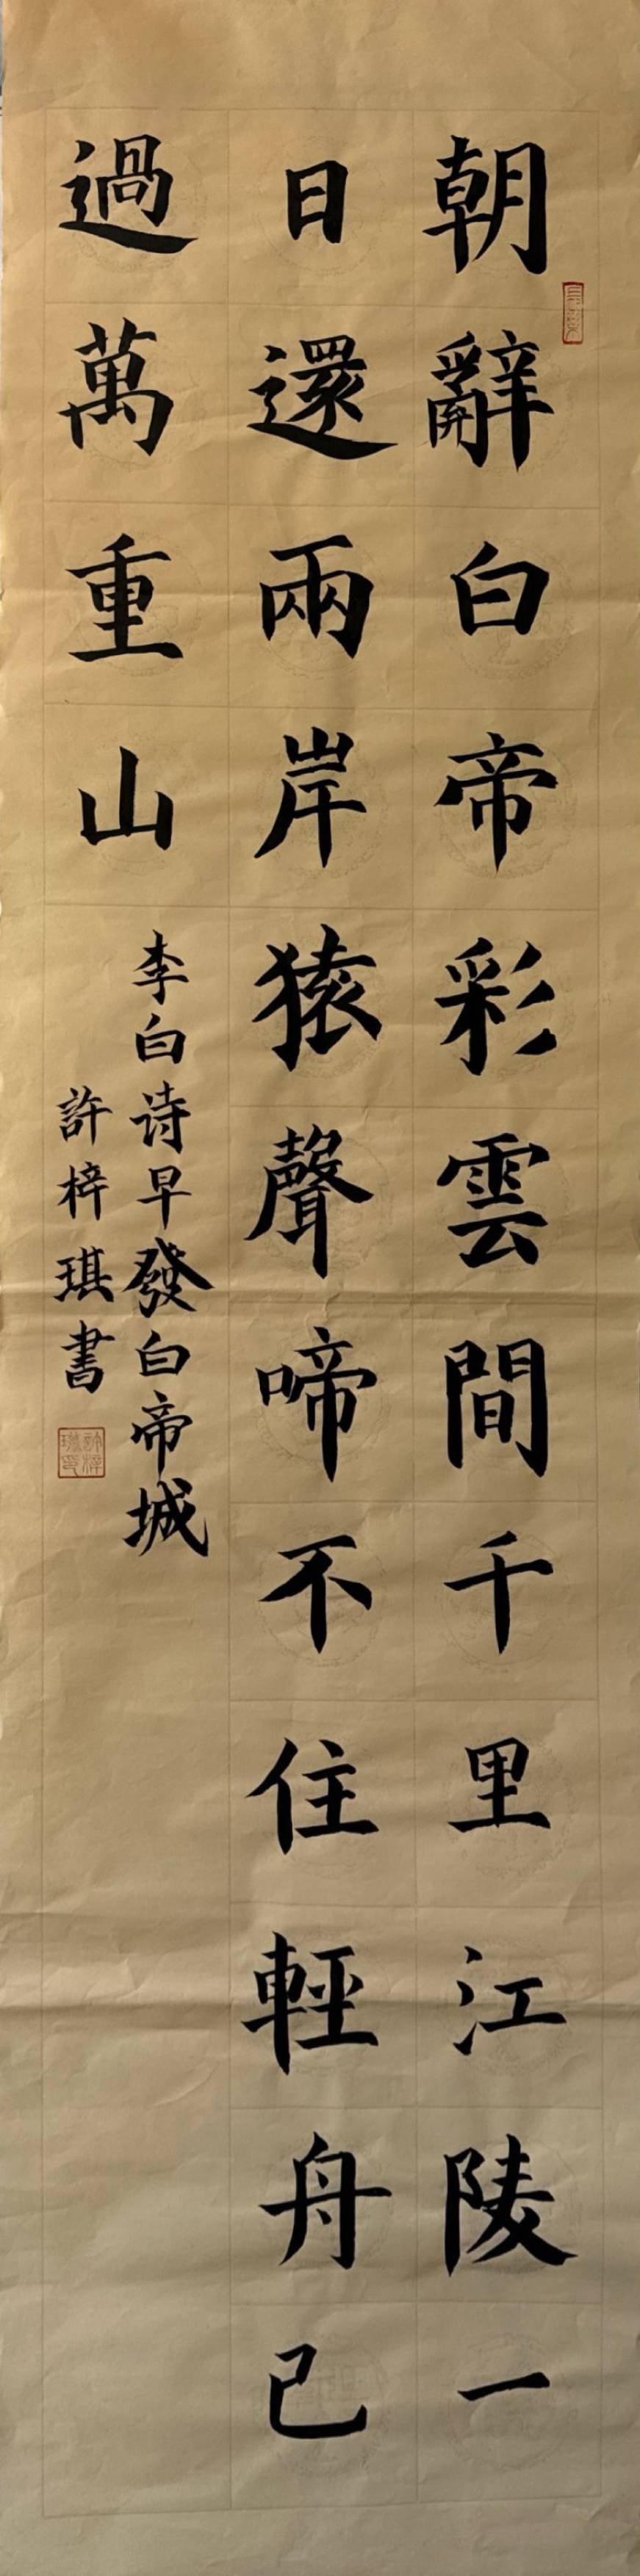 朝辭白帝彩雲間千里江陵一
日還兩岸猿聲啼不住輕舟已
過萬重山
李白诗早發白帝城
許梓琪書